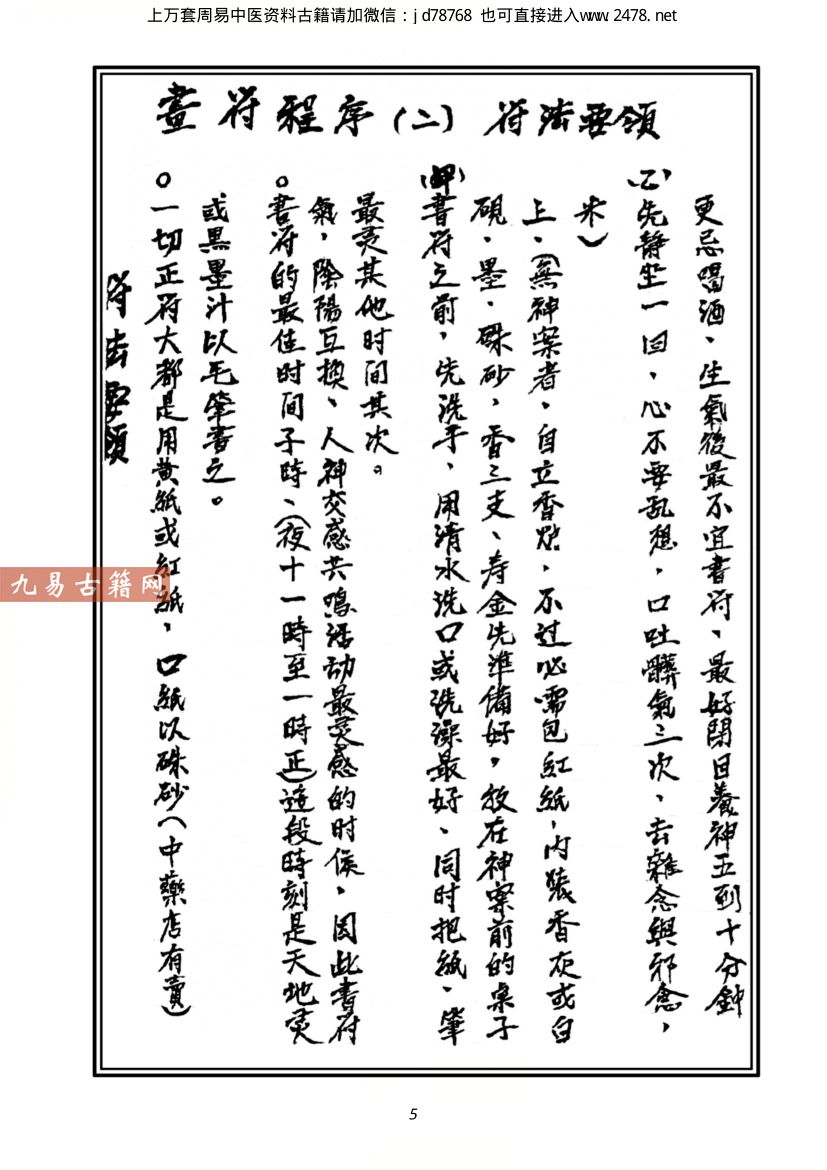 上万套周易中医资料古籍请加微信：jd78768 也可直接进入www.2478.net
畫符程序(二) 符法要領
符法要領
○一切正符大都是用黄紙或紅紙，口紙以硃砂(中藥店有賣)
或黒墨汁以毛筆書之。
○書符的最佳时间子時、(夜十一時至一時正)這段時刻是天地灵
氣，陰陽互換、人神交感共鳴活动最灵感的时候，因此書符
最灵其他时间其次。
(甲)書符之前，先洗手、用清水洗口或洗澡最好、同时把紙、筆
硯、墨、硃砂，香三支、寿金先準備好，放在神案前的桌子
上、(無神案者、自立香炉、不过必需包紅紙，内裝香灰或白
米)
(乙)先静坐一回、心不要乱想，口吐髒氣三次、去雜念與邪念，
更忌喝酒、生氣後最不宜書符、最好閉目養神五到十分鐘
九易古籍网
5